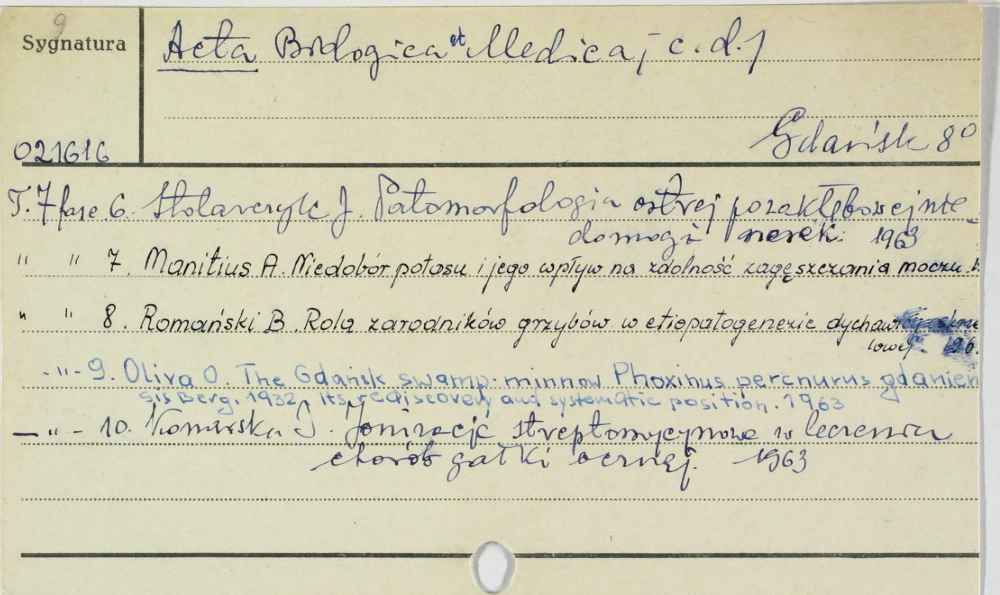 9
Sygnatura
Acta Biologica et Medica / c. d. /
Gdańsk 8°
021616
T. 7 fasc 6. Stolarczyk J. Patomorfologia ostrej pozakłębowej nie-
domogi nerek. 1963
" " 7. Manitius A. Niedobór potasu i jego wpływ na zdolność zagęszczania moczu.
" " 8. Romański B. Rola zarodników grzybów w etiopatogenezie dychawicy
lowej.
- " - 9. Oliva O. The Gdańsk swamp-minnow Phoxinus percnurus gdanien
sis Berg, 1932, its rediscovery and systematic position. 1963
- " - 10. J. Jonizacje streptomycynowe w leczeniu
chorób gałki ocznej. 1963